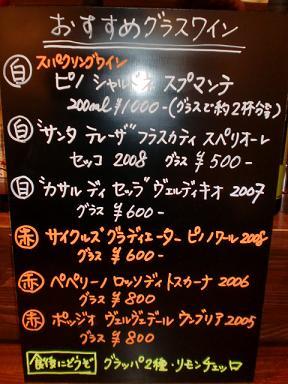 おすすめグラスワイン
白 スパークリングワイン
ピノ シャルドネ スプマンテ
200ml ¥1000-(グラスで約2杯分)
白 サンタ テレーザ フラスカティ スペリオーレ
セッコ 2008 グラス ¥500-
白 カサル ディ セッラ ヴェルディキオ 2007
グラス ¥600-
赤 サイクルズ グラディエーター ピノノワール 2008
グラス ¥600-
赤 ペペリーノ ロッソ ディ トスカーナ 2006
グラス ¥800
赤 ポッジオ ヴェルヴェデール ウンブリア 2005
グラス ¥800
食後にどうぞ グラッパ2種・リモンチェッロ